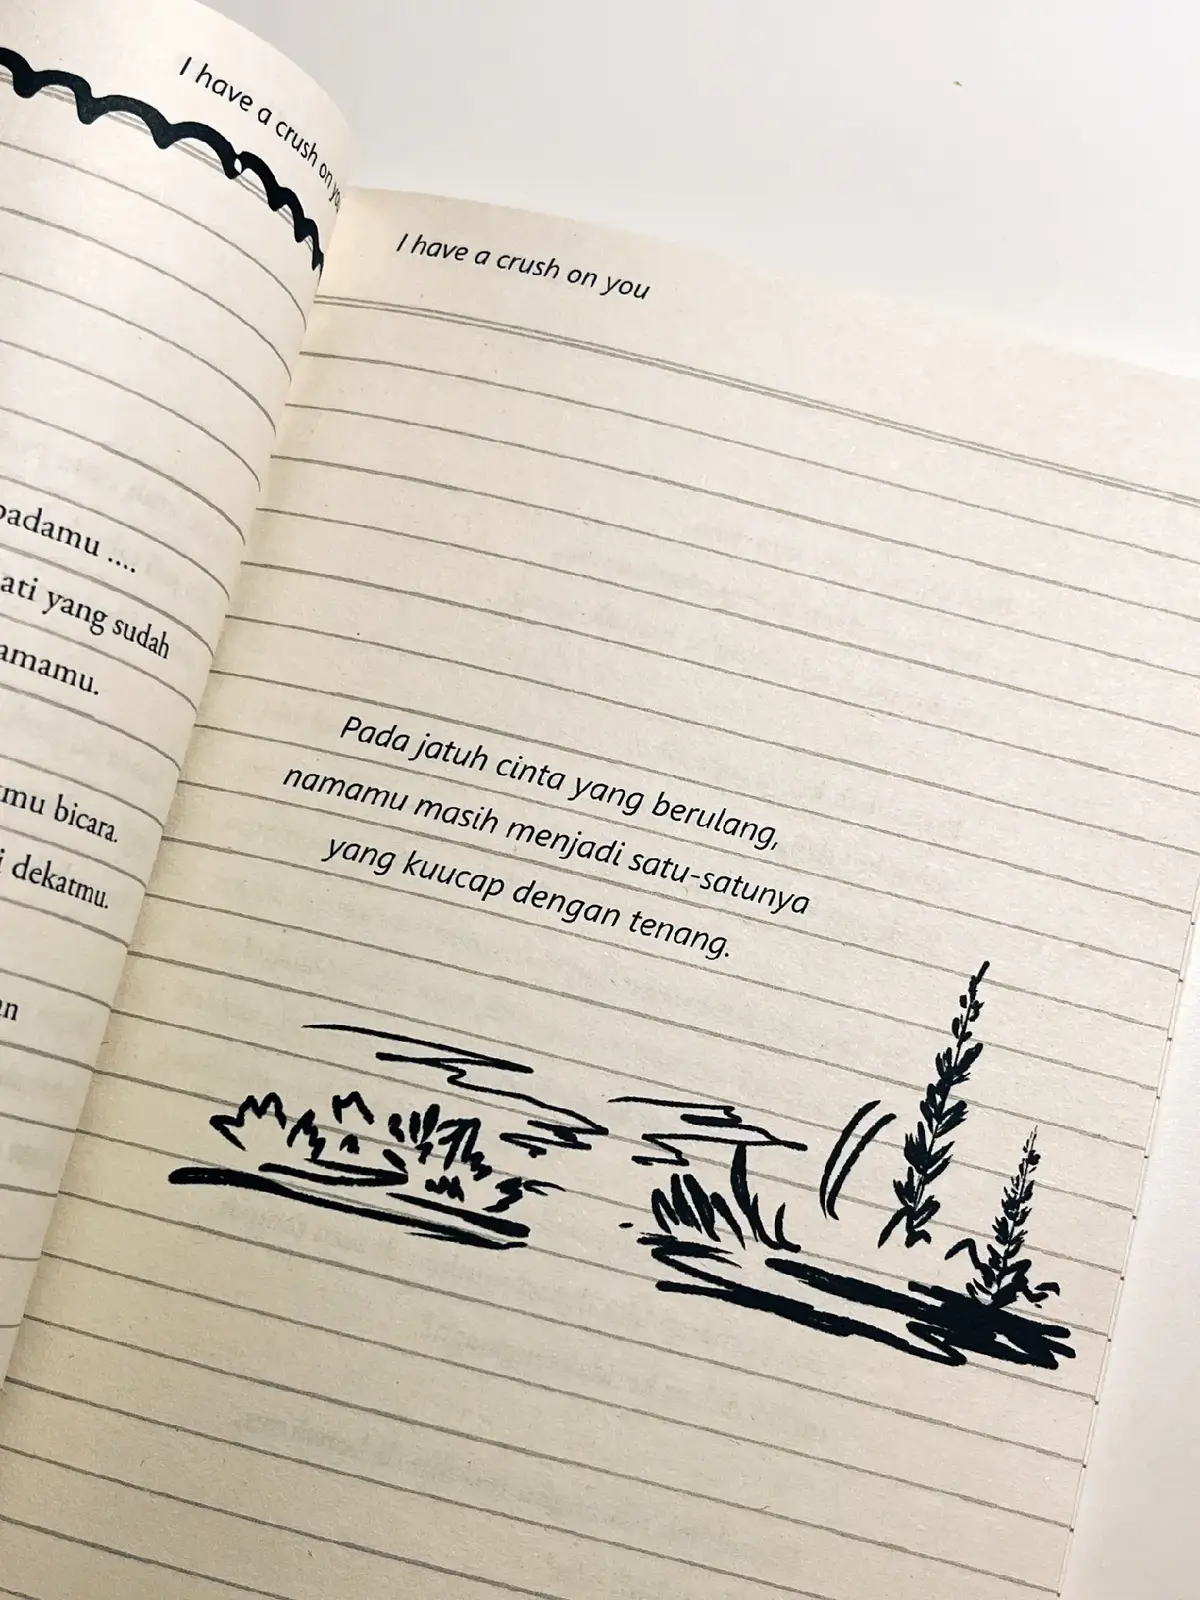 I have a crush on
padamu ....
ati yang sudah
amamu.
mu bicara.
i dekatmu.
an
I have a crush on you
Pada jatuh cinta yang berulang,
namamu masih menjadi satu-satunya
yang kuucap dengan tenang.